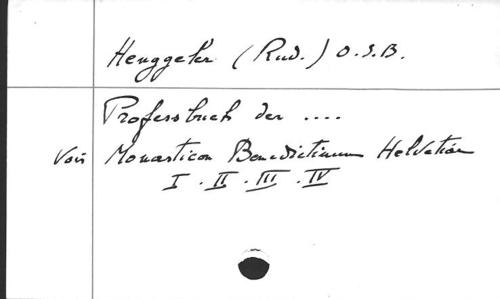 Henggeler (Rud.) O.S.B.
Professbuch der ....
Voir Monasticon Benedictinum Helvetiae
I . II . III . IV